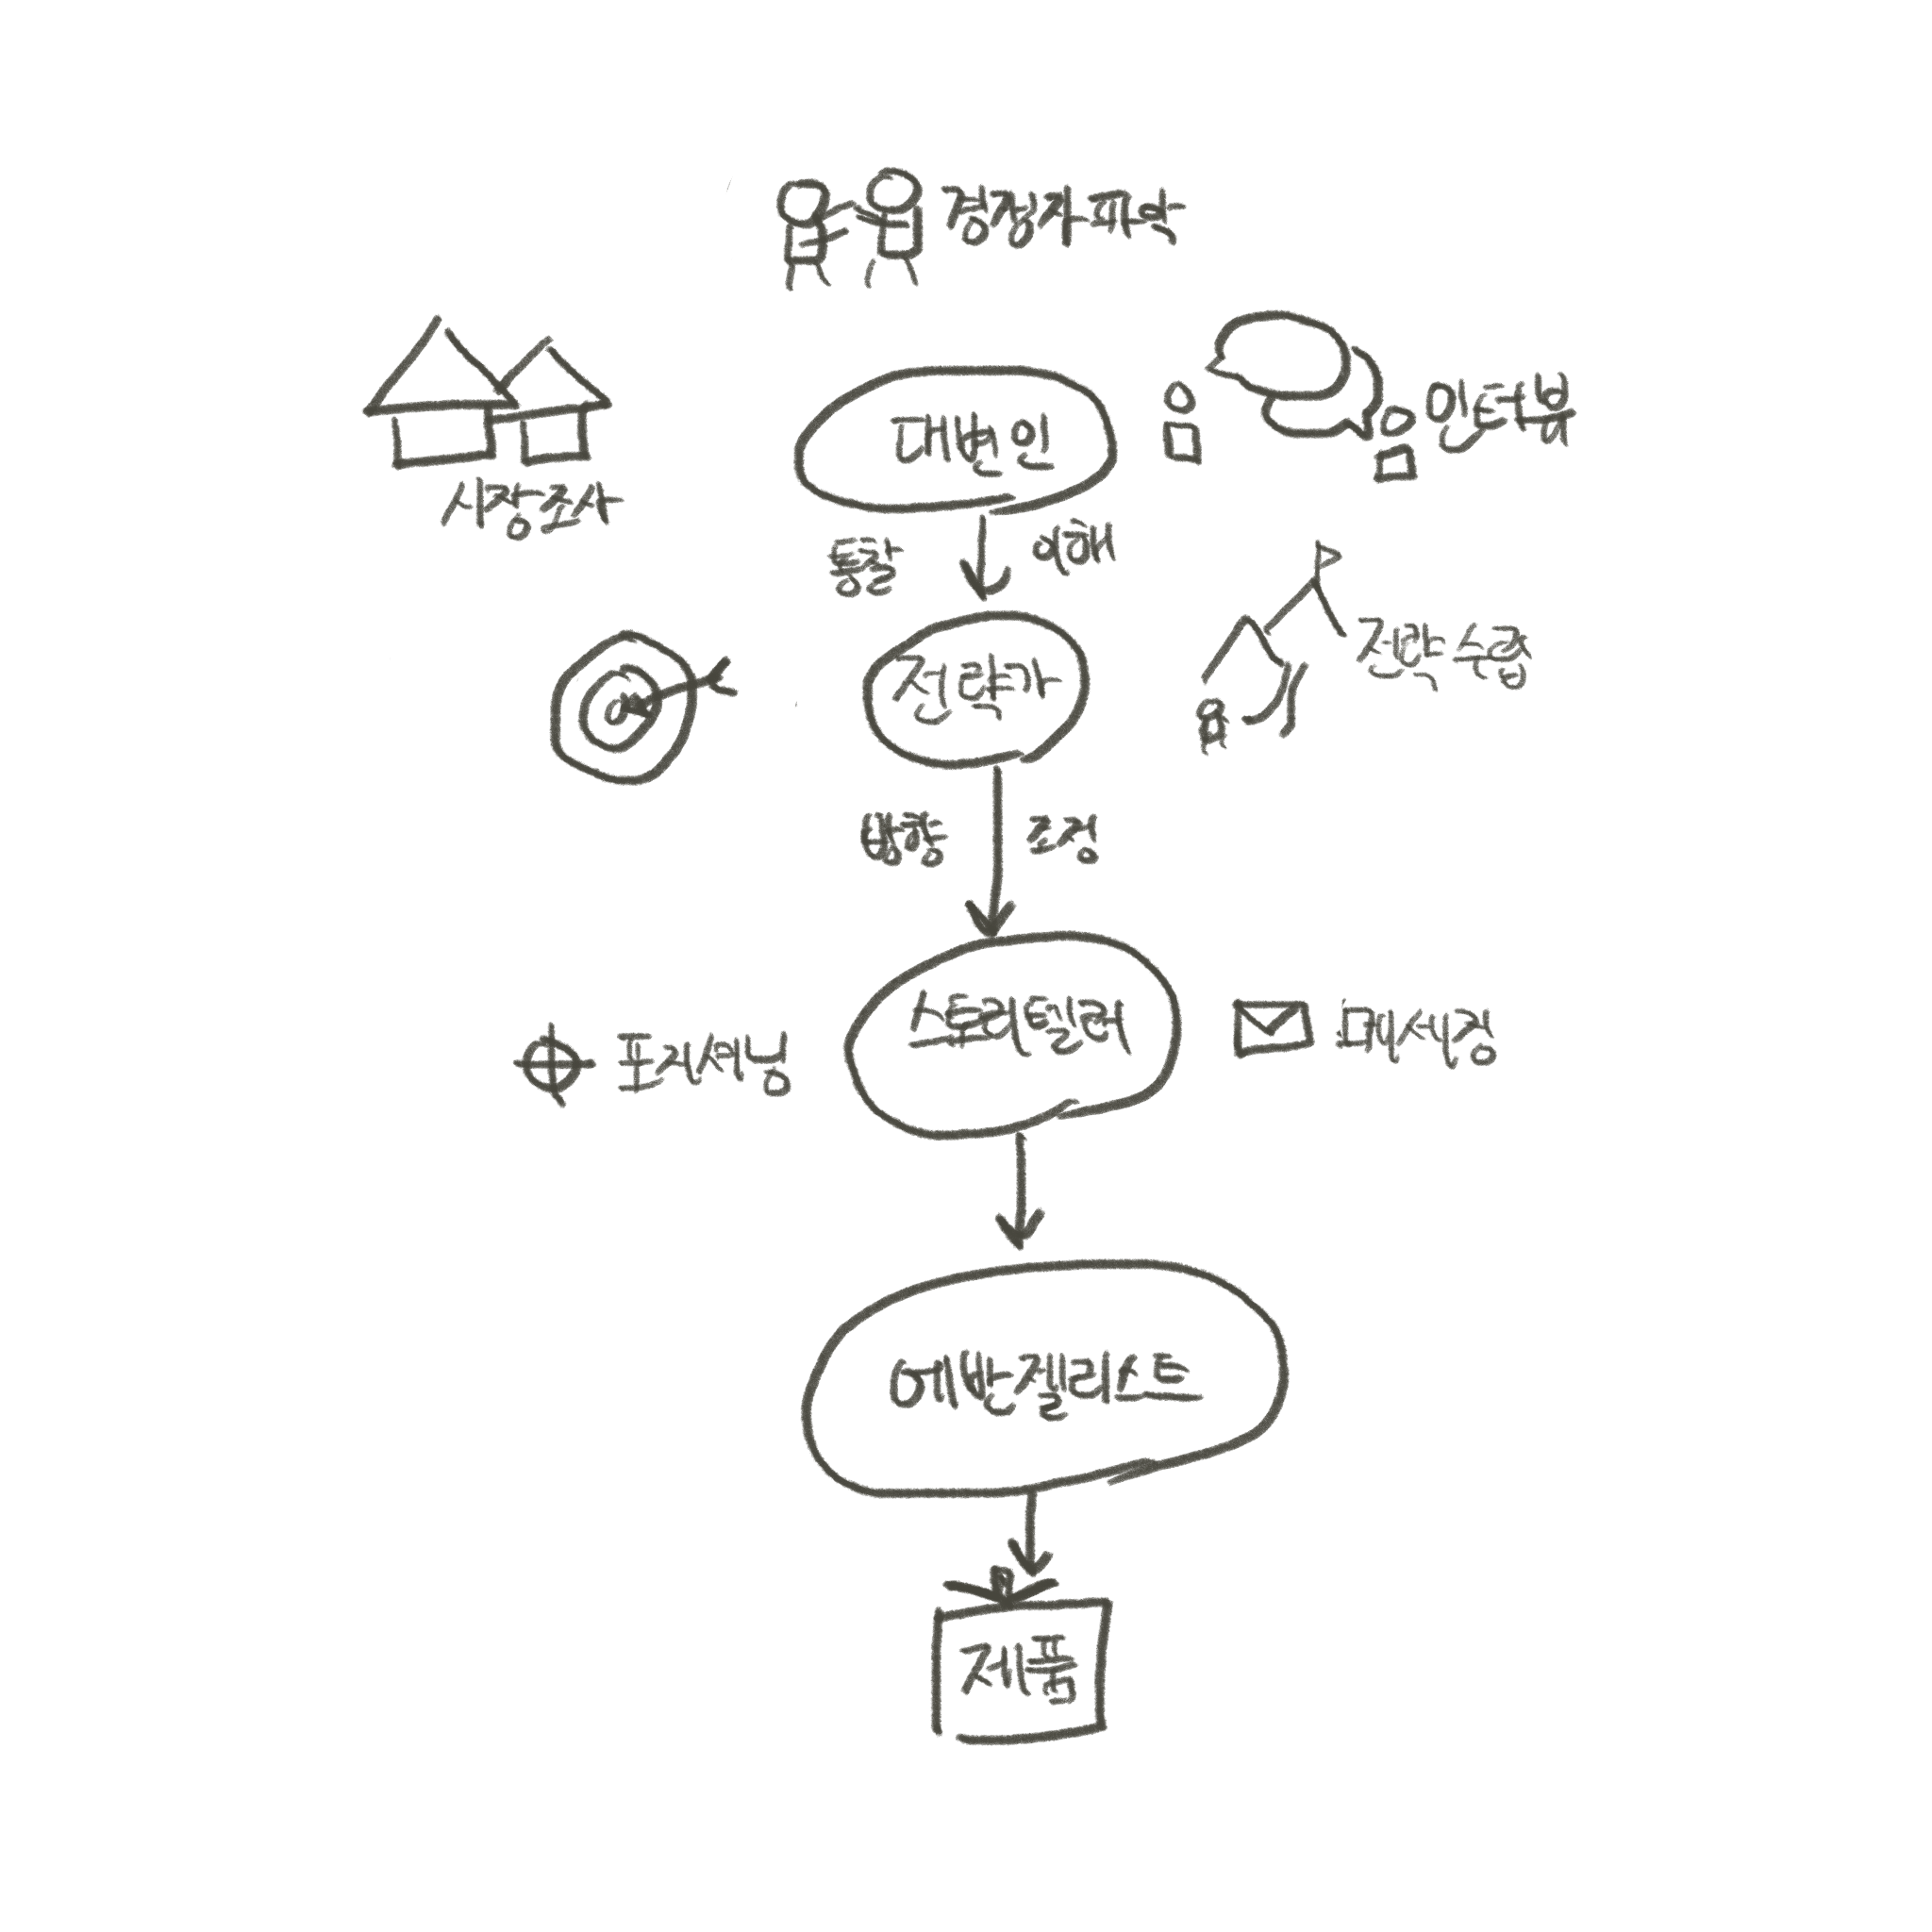 경쟁자 파악
대변인
인터뷰
시장조사
통찰
이해
전략가
전략 수립
방향
조정
스토리텔러
포지셔닝
메세징
에반젤리스트
제품